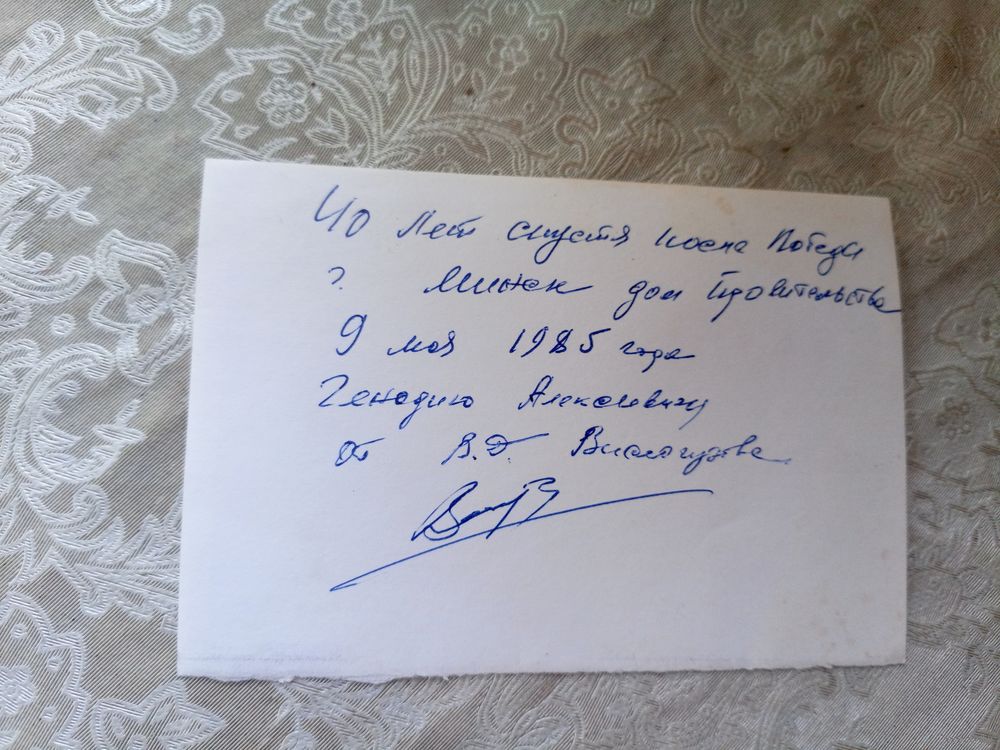 40 лет спустя после Победы
г. Минск дом Правительства
9 мая 1985 года
Генадию Алексеевичу
от В.Д.